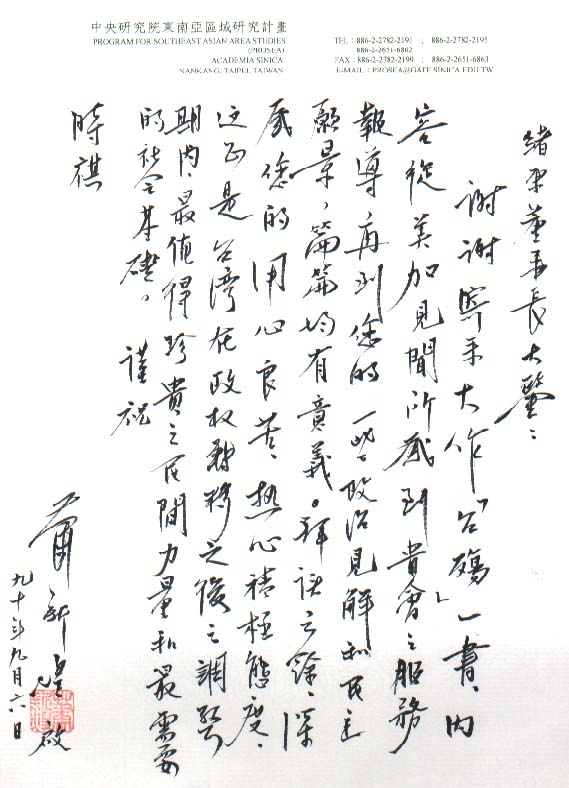 中央研究院東南亞區域研究計畫
PROGRAM FOR SOUTHEAST ASIAN AREA STUDIES
(PROSEA)
ACADEMIA SINICA
NANKANG, TAIPEI, TAIWAN
TEL：886-2-2782-2191 ; 886-2-2782-2195
886-2-2651-6862
FAX：886-2-2782-2199 ; 886-2-2651-6863
E-MAIL：PROSEA@GATE.SINICA.EDU.TW
董事長大鑒：
謝謝寄來大作「台殤」一書、內
容從美加見聞所感到貴會之服務
報導，再到您的一些政治見解和民主
願景，篇篇均有意義。拜讀之餘、深
感您的用心良苦、熱心積極態度、
這正是台湾在政权轉移之後之調整
期內、最值得珍貴之民間力量和最需要
的社会基礎。謹祝
時祺
蕭新煌 啟
九十年九月六日